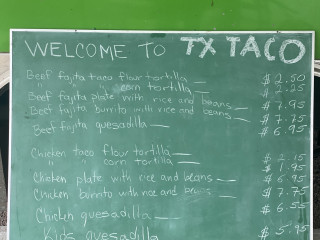 WELCOME TO TX TACO
Beef fajita taco flour tortilla $2.50
" " " corn tortilla $2.25
Beef fajita plate with rice and beans $7.95
Beef fajita burrito with rice and beans $7.75
Beef fajita quesadilla $6.95
Chicken taco flour tortilla $2.15
" " corn tortilla $1.95
Chicken plate with rice and beans $6.95
Chicken borrito with rice and beans $7.75
Chicken quesadilla $6.55
Kids quesadilla $5.95